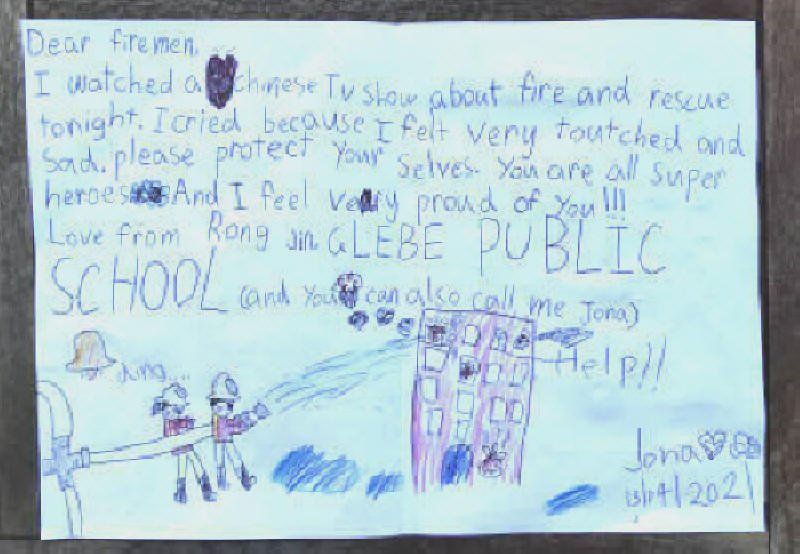 Dear firemen,
I watched a chinese Tv show about fire and rescue
tonight. I cried because I felt very toutched and
sad. please protect your selves. You are all super
heroes And I feel very proud of you!!!
Love from Rong Jin GLEBE PUBLIC
SCHOOL (and you can also call me Jona)
Help!!
ding....
Jona